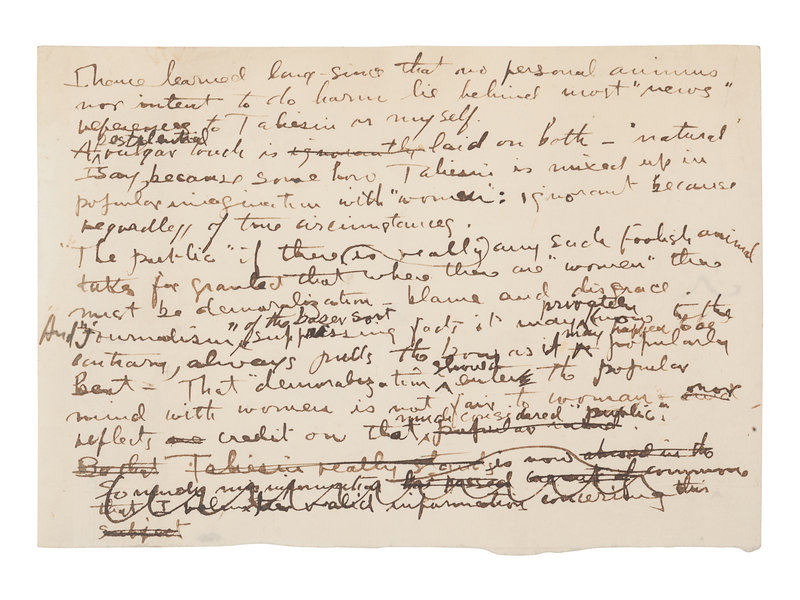 I have learned long-since that no personal animus
nor intent to do harm lie behind most "news"
references to Taliesin or myself.
A vulgar touch is ignorantly laid on both – "natural"
I say, because some how Taliesin is mixed up in
popular imagination with "women": ignorant because
regardless of true circumstances.
"The public" if there (is really) any such foolish animal
takes for granted that where there are "women" there
must be demoralization – blame and disgrace.
privately
And "Journalism" "of the baser sort" suppressing facts it may know to the
contrary, always pulls the bow as it may happen to be popularly
Bent – That demoralization should enter the popular
mind with women is not fair to woman – nor
reflects no credit on that much considered "public."
Taliesin really is now abroad in the
So much misinformation common
that I valid information concerning this
subject